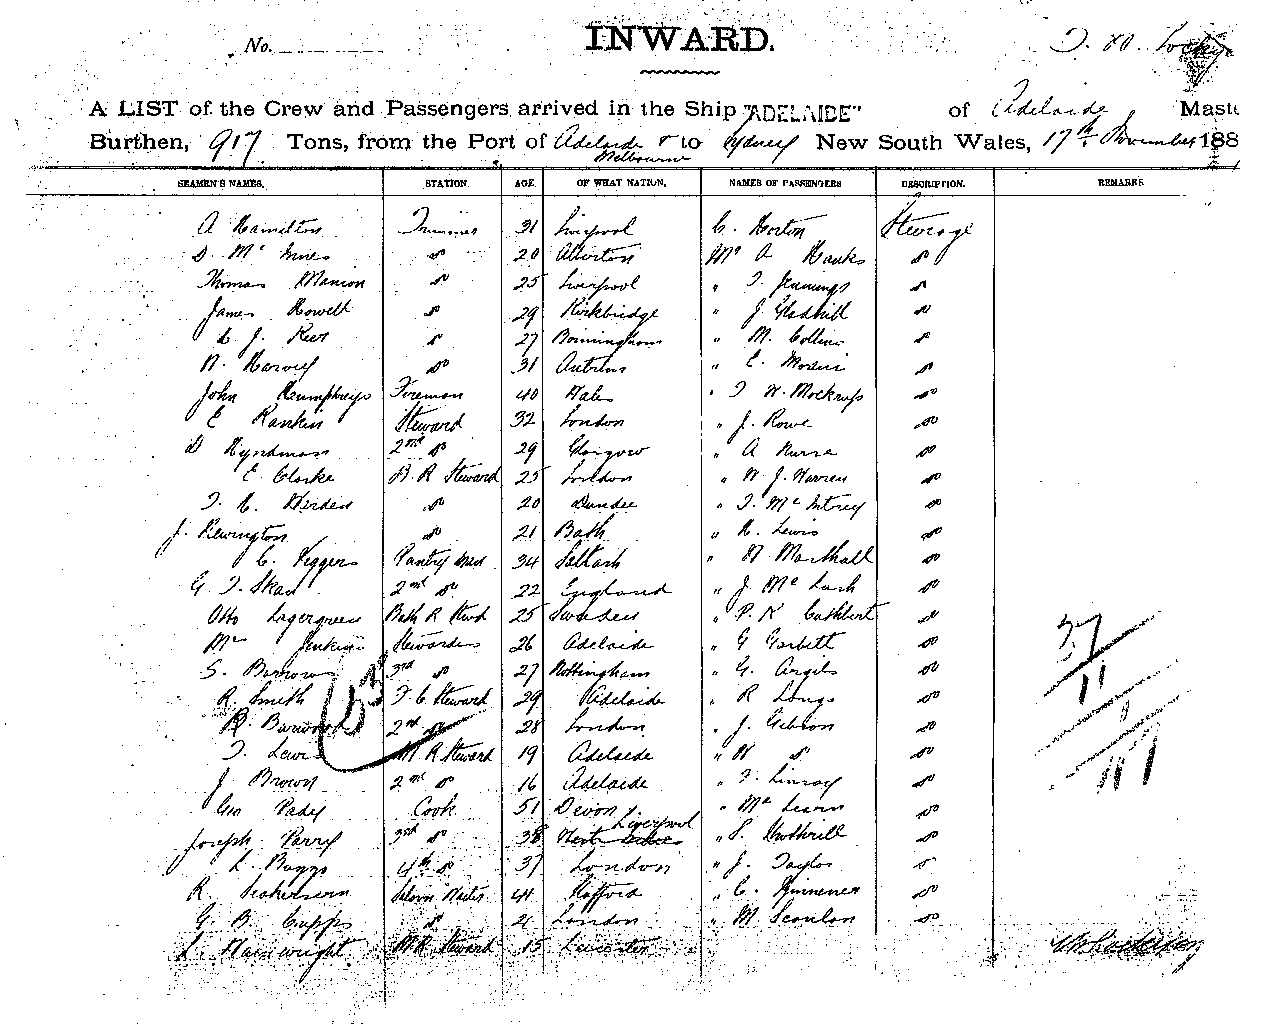 No.
INWARD.
A LIST of the Crew and Passengers arrived in the Ship "ADELAIDE" of Adelaide
Burthen, 917 Tons, from the Port of Adelaide & to Sydney New South Wales, 17th November 188
Melbourne
SEAMEN'S NAMES. STATION. AGE. OF WHAT NATION. NAMES OF PASSENGERS DESCRIPTION. REMARKS
A Hamilton Trimmer 31 Liverpool C. Horton Steerage
D. Mc Innes do 20 Mr A Hawks do
Thomas Manion do 25 Liverpool " T. Jennings do
James Howell do 29 Kirkbridge " J. Gledhill do
do 27 Birmingham " M. Collins do
N. Harvey do 31 Antrim " E. do
John Humphreys Fireman 40 Wales " T W. Mockrups do
E Rankin Steward 32 London " J. Rowe do
D Hyndman 2nd do 29 Glasgow " A Nurse do
E Clarke B. R Steward 25 London " W. J. Warren do
do 20 Dundee " T. Mc Intrey do
J. Rewington do 21 Bath " H. Lewis do
C. Veggers Pantry man 34 Saltash " W Marshall do
G. T. Skan 2nd do 22 England " J. Mc do
Otto Lagergreen Bath R Stwd 25 Sweden " P. K Cuthbert do
Mrs Jenkins Stewardess 26 Adelaide " G Garbett do
S. Barrow 3rd do 27 Nottingham " G. do
R. Smith F. C. Steward 29 Adelaide " R Longs do
R. 2nd do 28 London " J. Gibson do
T. Lewis M R Steward 19 Adelaide " W do do
J. Brown 2nd do 16 Adelaide " do
Geo Pady Cook 51 Devon " do
Joseph Parry 3rd do 38 Liverpool " S. do
L. Boggs 4th do 37 London " J. Taylor do
R. 44 " C. do
G. B. Cupps do 21 London " M Scanlon do
L. Wainwright M.R. Steward 15
37
11
53